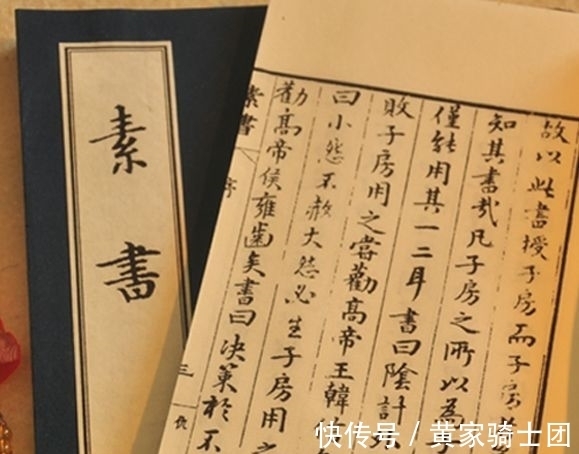 素書
故以此書授子房而子房
知其書哉凡子房之所以為
僅能用其一二耳書曰陰計
敗子房用之嘗勸髙帝王韓
曰小怨不赦大怨必生子房用之
勸髙帝侯雍齒矣書曰決策於不
素書 序 三
快传号 / 黄家骑士团